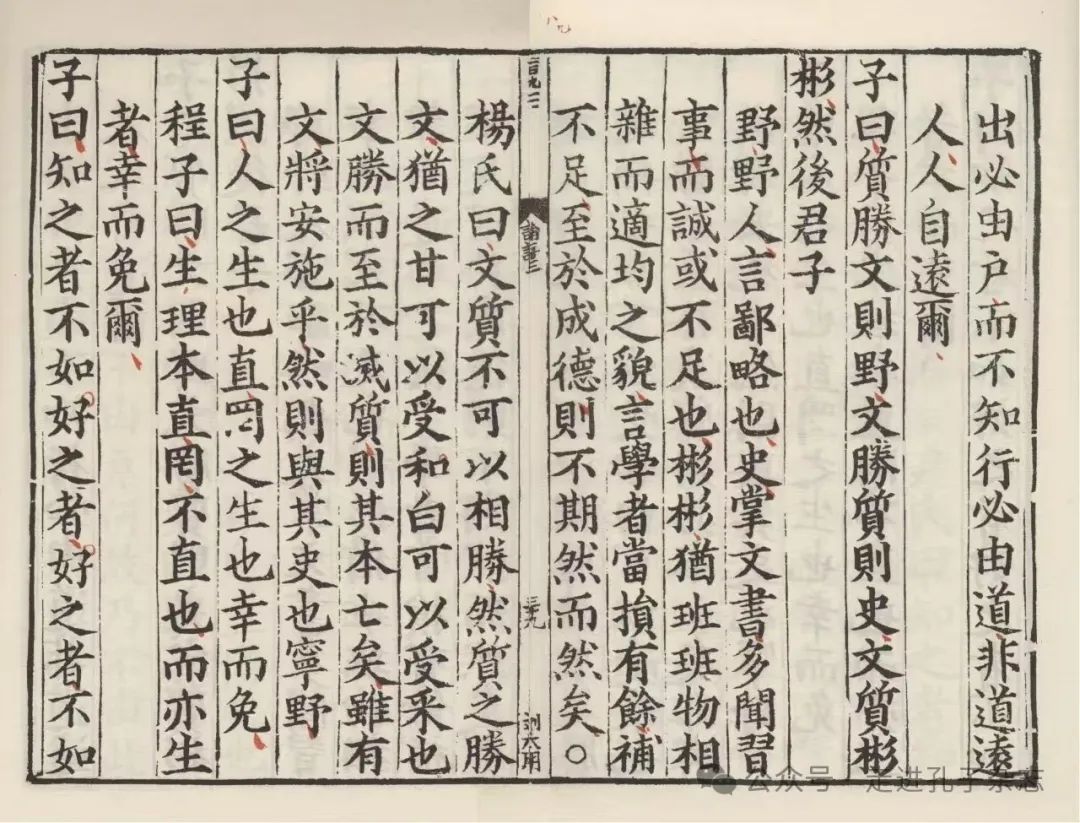 出必由户而不知行必由道非道遠
人人自遠爾
子曰質勝文則野文勝質則史文質彬
彬然後君子
野野人言鄙略也史掌文書多聞習
事而誠或不足也彬彬猶班班物相
雜而適均之貌言學者當損有餘補
不足至於成德則不期然而然矣○
論語三
三九
楊氏曰文質不可以相勝然質之勝
文猶之甘可以受和白可以受采也
文勝而至於滅質則其本亡矣雖有
文將安施乎然則與其史也寧野
子曰人之生也直罔之生也幸而免
程子曰生理本直罔不直也而亦生
者幸而免爾
子曰知之者不如好之者好之者不如
公众号 走进孔子杂志